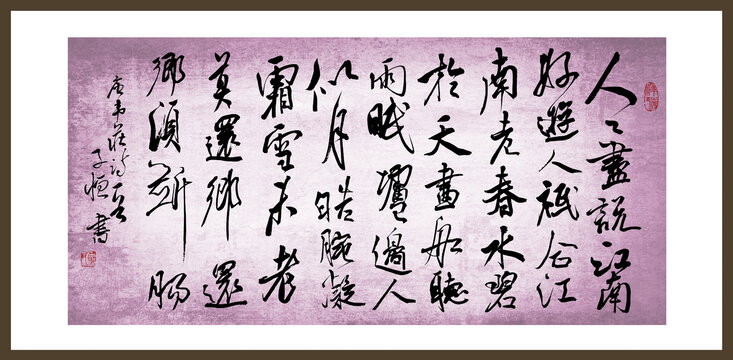 人〻盡說江南
好遊人祇合江
南老春水碧
於天畫船聽
雨眠壚邊人
似月皓腕凝
霜雪未老
莫還鄉還
鄉須斷腸
唐韋莊詩一首
子恒書